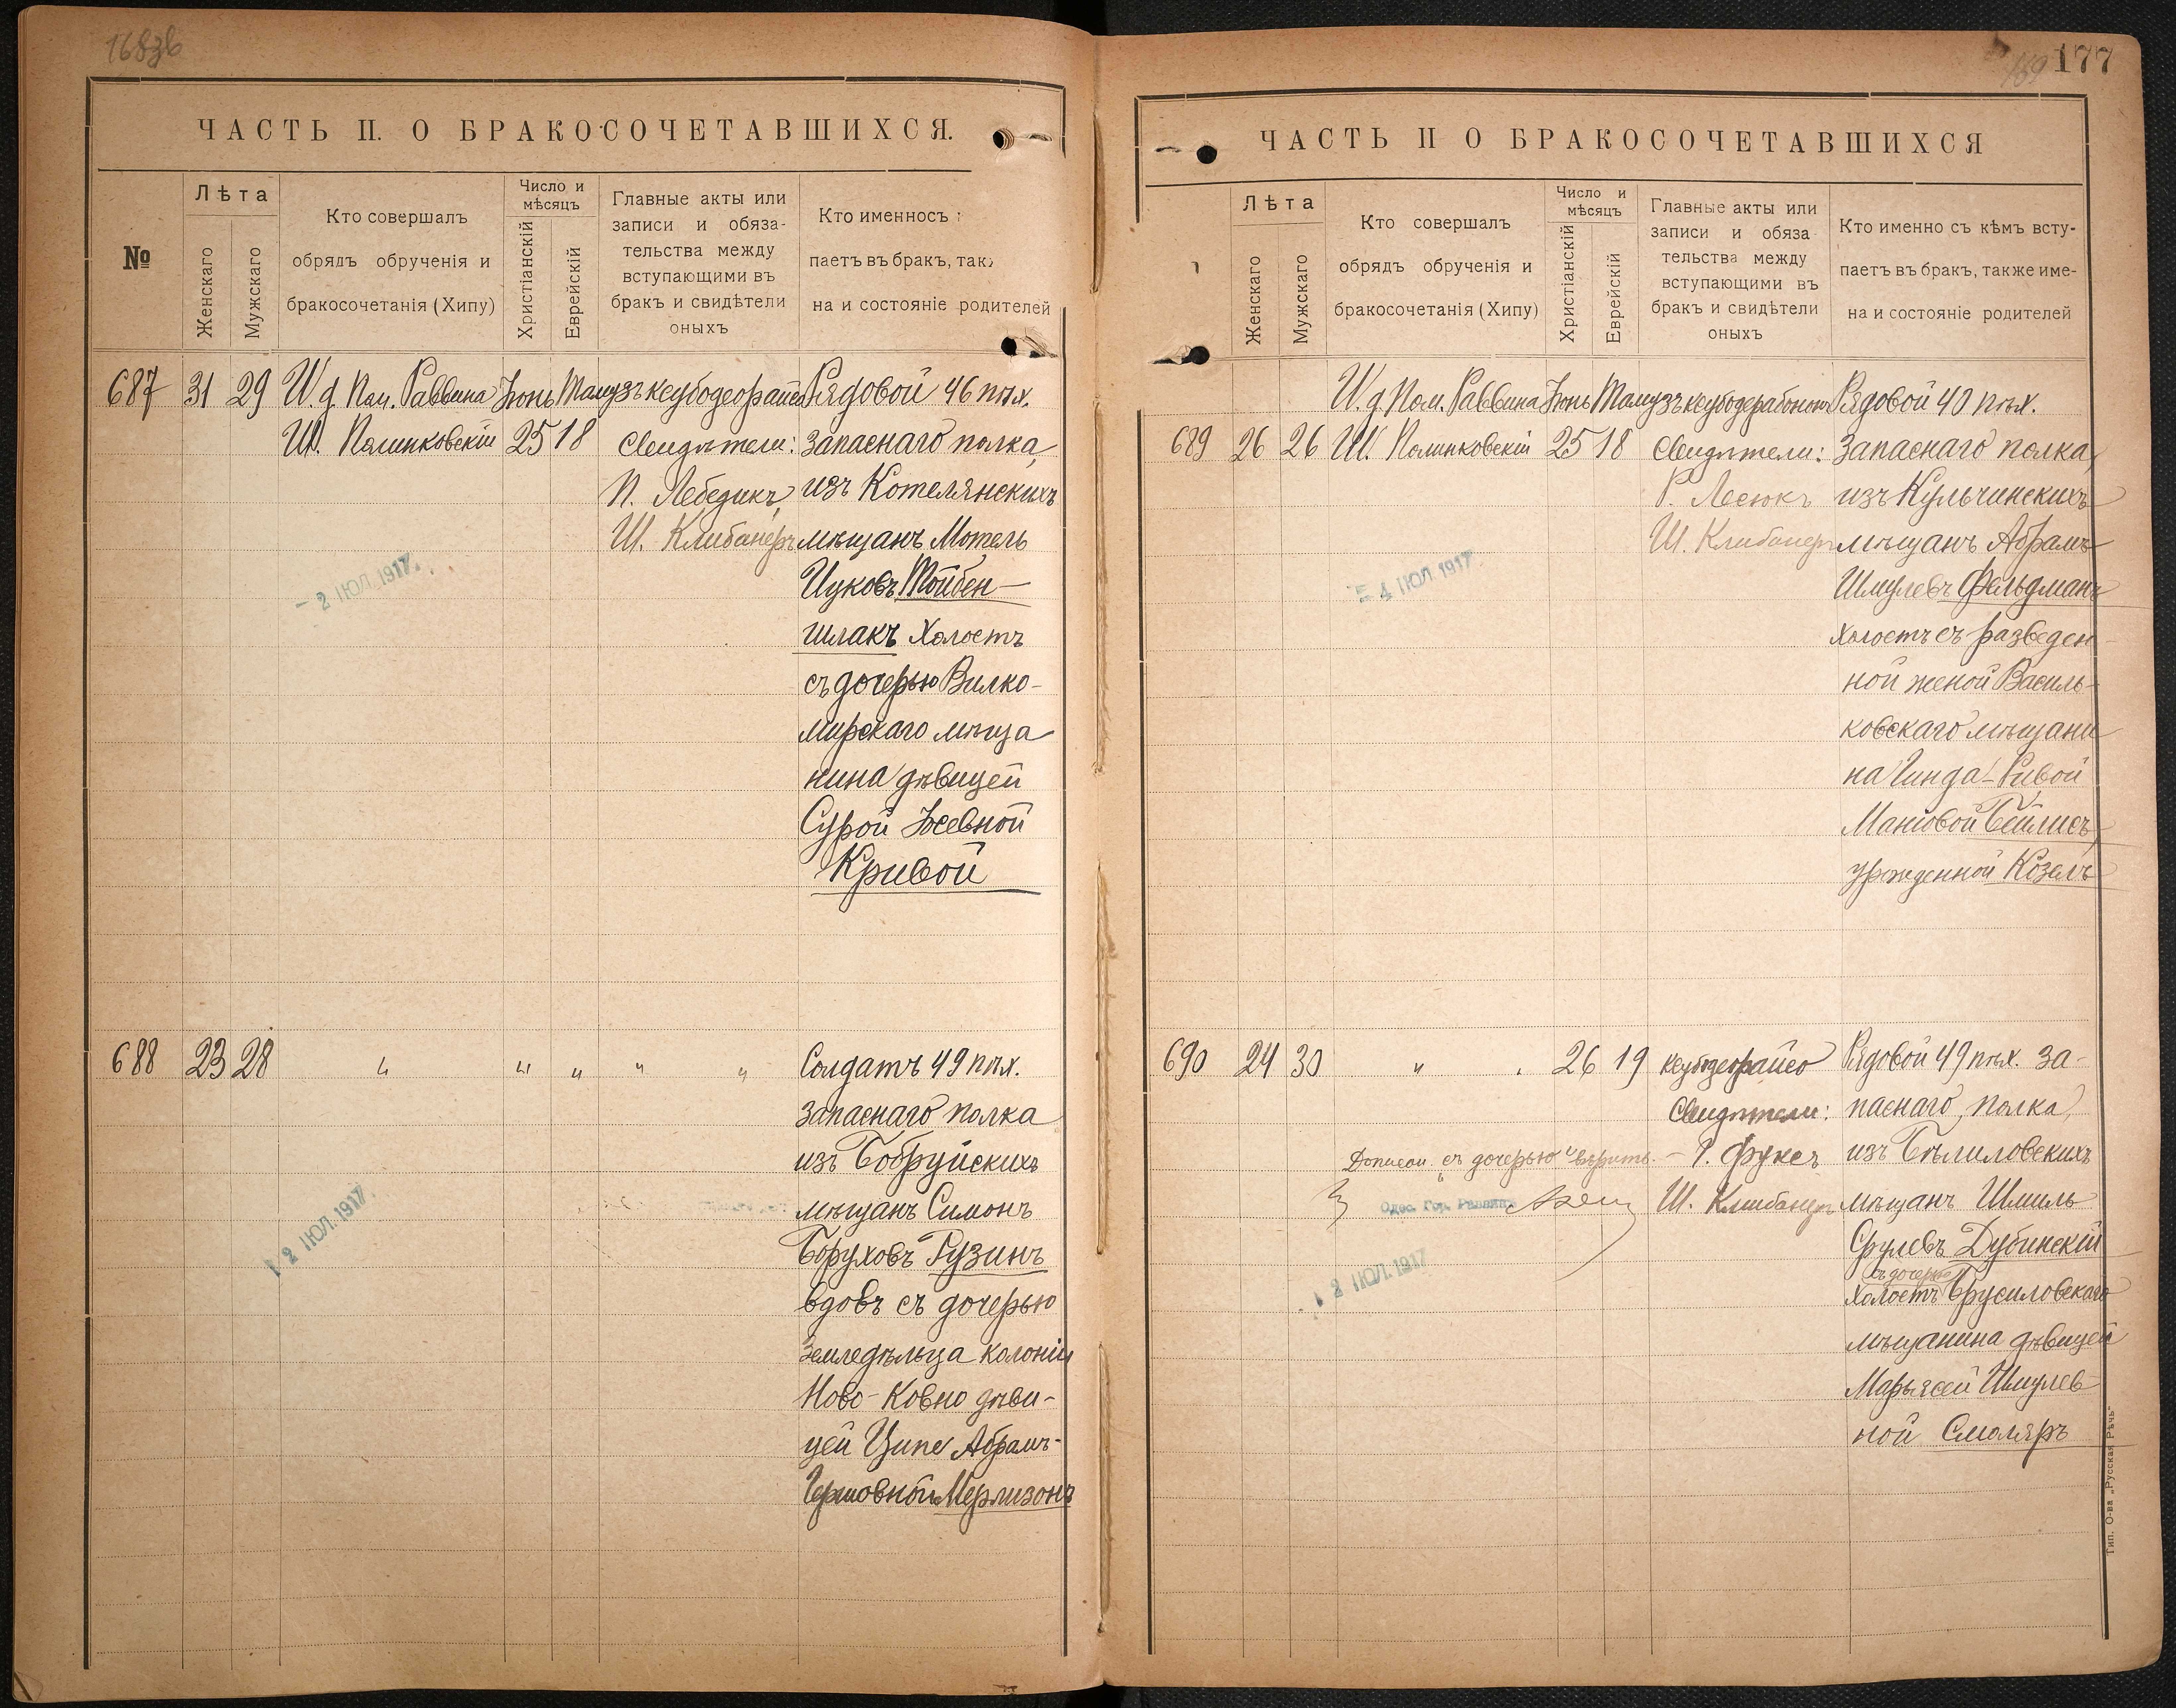 177
ЧАСТЬ II. О БРАКОСОЧЕТАВШИХСЯ.
№
Лѣта
Женскаго
Мужскаго
Кто совершалъ
обрядъ обрученія и
бракосочетанія (Хипу)
Число и
мѣсяцъ
Христіанскій
Еврейскій
Главные акты или
записи и обяза-
тельства между
вступающими въ
бракъ и свидѣтели
оныхъ
Кто именно съ
паетъ въ бракъ, так
на и состояніе родителей
687 31 29 И. д. Пом. Раввина Іюнь Тамузъ Рядовой 46 пѣх.
Ш. Полинковскій 25 18 Свидѣтели: запаснаго полка,
П. Лебедикъ, изъ Котелянскихъ
Ш. Клибанеръ мѣщанъ Мотель
Ицковъ Тойбен-
шлакъ холостъ
съ дочерью Вилко-
мирскаго мѣща
нина дѣвицей
Сурой Іосевной
Кривой
2 ІЮЛ. 1917.
688 23 28 " " " " " Солдатъ 49 пѣх.
запаснаго полка
изъ Бобруйскихъ
мѣщанъ Симонъ
Боруховъ Рузинъ
вдовъ съ дочерью
земледѣльца колоніи
Ново-Ковно дѣви-
цей Ципе Абрамъ-
Гершовной Мерлизонъ
12 ІЮЛ. 1917
ЧАСТЬ II О БРАКОСОЧЕТАВШИХСЯ
Лѣта
Женскаго
Мужскаго
Кто совершалъ
обрядъ обрученія и
бракосочетанія (Хипу)
Число и
мѣсяцъ
Христіанскій
Еврейскій
Главные акты или
записи и обяза
тельства между
вступающими въ
бракъ и свидѣтели
оныхъ
Кто именно съ кѣмъ всту-
паетъ въ бракъ, также име-
на и состояніе родителей
И. д. Пом. Раввина Іюнь Тамузъ Рядовой 40 пѣх.
689 26 26 Ш. Полинковскій 25 18 Свидѣтели: запаснаго полка,
Р. Лесюкъ изъ Кульчинскихъ
Ш. Клибанеръ мѣщанъ Абрамъ
Шмулевъ Фельдманъ
холостъ съ разведен-
ной женой Василь-
ковскаго мѣщани
на Гинда-Ривой
Маніовой Бейлисъ,
урожденной Козелъ
4 ІЮЛ 1917
690 24 30 " 26 19 Рядовой 49 пѣх. за-
Свидѣтели: паснаго полка,
Г. Фуксъ изъ Бѣлиловскихъ
Ш. Клибанеръ мѣщанъ Шмиль
Срулевъ Дубинскій
съ дочерью
холостъ Брусиловскаго
мѣщанина дѣвицей
Марьясей Шмулев-
ной Смоляръ
"съ дочерью" вѣрить.
Одес. Гор. Раввинъ
12 ІЮЛ. 1917
Тип. О-ва „Русская Рѣчь"